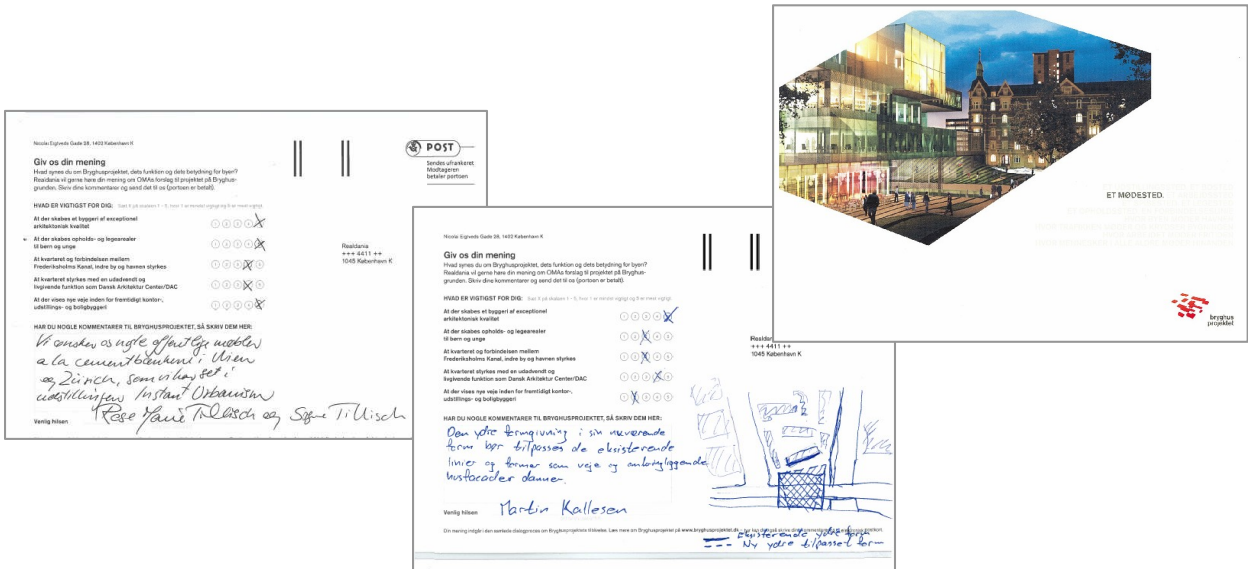 Nicolai Eigtveds Gade 28, 1402 København K
Giv os din mening
Hvad synes du om Bryghusprojektet, dets funktion og dets betydning for byen?
Realdania vil gerne høre din mening om OMAs forslag til projektet på Bryghus-
grunden. Skriv dine kommentarer og send det til os (portoen er betalt).
HVAD ER VIGTIGST FOR DIG: Sæt X på skalaen 1 - 5, hvor 1 er mindst vigtigt og 5 er mest vigtigt
At der skabes et byggeri af exceptionel
arkitektonisk kvalitet
At der skabes opholds- og legearealer
til børn og unge
At kvarteret og forbindelsen mellem
Frederiksholms Kanal, indre by og havnen styrkes
At kvarteret styrkes med en udadvendt og
livgivende funktion som Dansk Arkitektur Center/DAC
At der vises nye veje inden for fremtidigt kontor-,
udstillings- og boligbyggeri
HAR DU NOGLE KOMMENTARER TIL BRYGHUSPROJEKTET, SÅ SKRIV DEM HER:
Vi ønsker os nogle offentlige møbler
a la cementbænkene i Wien
og Zürich, som vi har set i
udstillingen Instant Urbanism
Rose Marie Tillisch og Signe Tillisch
Venlig hilsen
POST
Sendes ufrankeret
Modtageren
betaler portoen
Realdania
+++ 4411 ++
1045 København K
Nicolai Eigtveds Gade 28, 1402 København K
Giv os din mening
Hvad synes du om Bryghusprojektet, dets funktion og dets betydning for byen?
Realdania vil gerne høre din mening om OMAs forslag til projektet på Bryghus-
grunden. Skriv dine kommentarer og send det til os (portoen er betalt).
HVAD ER VIGTIGST FOR DIG: Sæt X på skalaen 1 - 5, hvor 1 er mindst vigtigt og 5 er mest vigtigt
At der skabes et byggeri af exceptionel
arkitektonisk kvalitet
At der skabes opholds- og legearealer
til børn og unge
At kvarteret og forbindelsen mellem
Frederiksholms Kanal, indre by og havnen styrkes
At kvarteret styrkes med en udadvendt og
livgivende funktion som Dansk Arkitektur Center/DAC
At der vises nye veje inden for fremtidigt kontor-,
udstillings- og boligbyggeri
HAR DU NOGLE KOMMENTARER TIL BRYGHUSPROJEKTET, SÅ SKRIV DEM HER:
Den ydre formgivning i sin nuværende
form bør tilpasses de eksisterende
linier og former som veje og omkringliggende
husfacader danner.
Venlig hilsen Martin Kallesen
Din mening indgår i den samlede dialogproces om Bryghusprojektets tilblivelse. Læs mere om Bryghusprojektet på www.bryghusprojektet.dk
Eksisterende ydre form
Ny ydre tilpasset form
+++ 4411 ++
1045 København K
ET MØDESTED.
bryghus
projektet